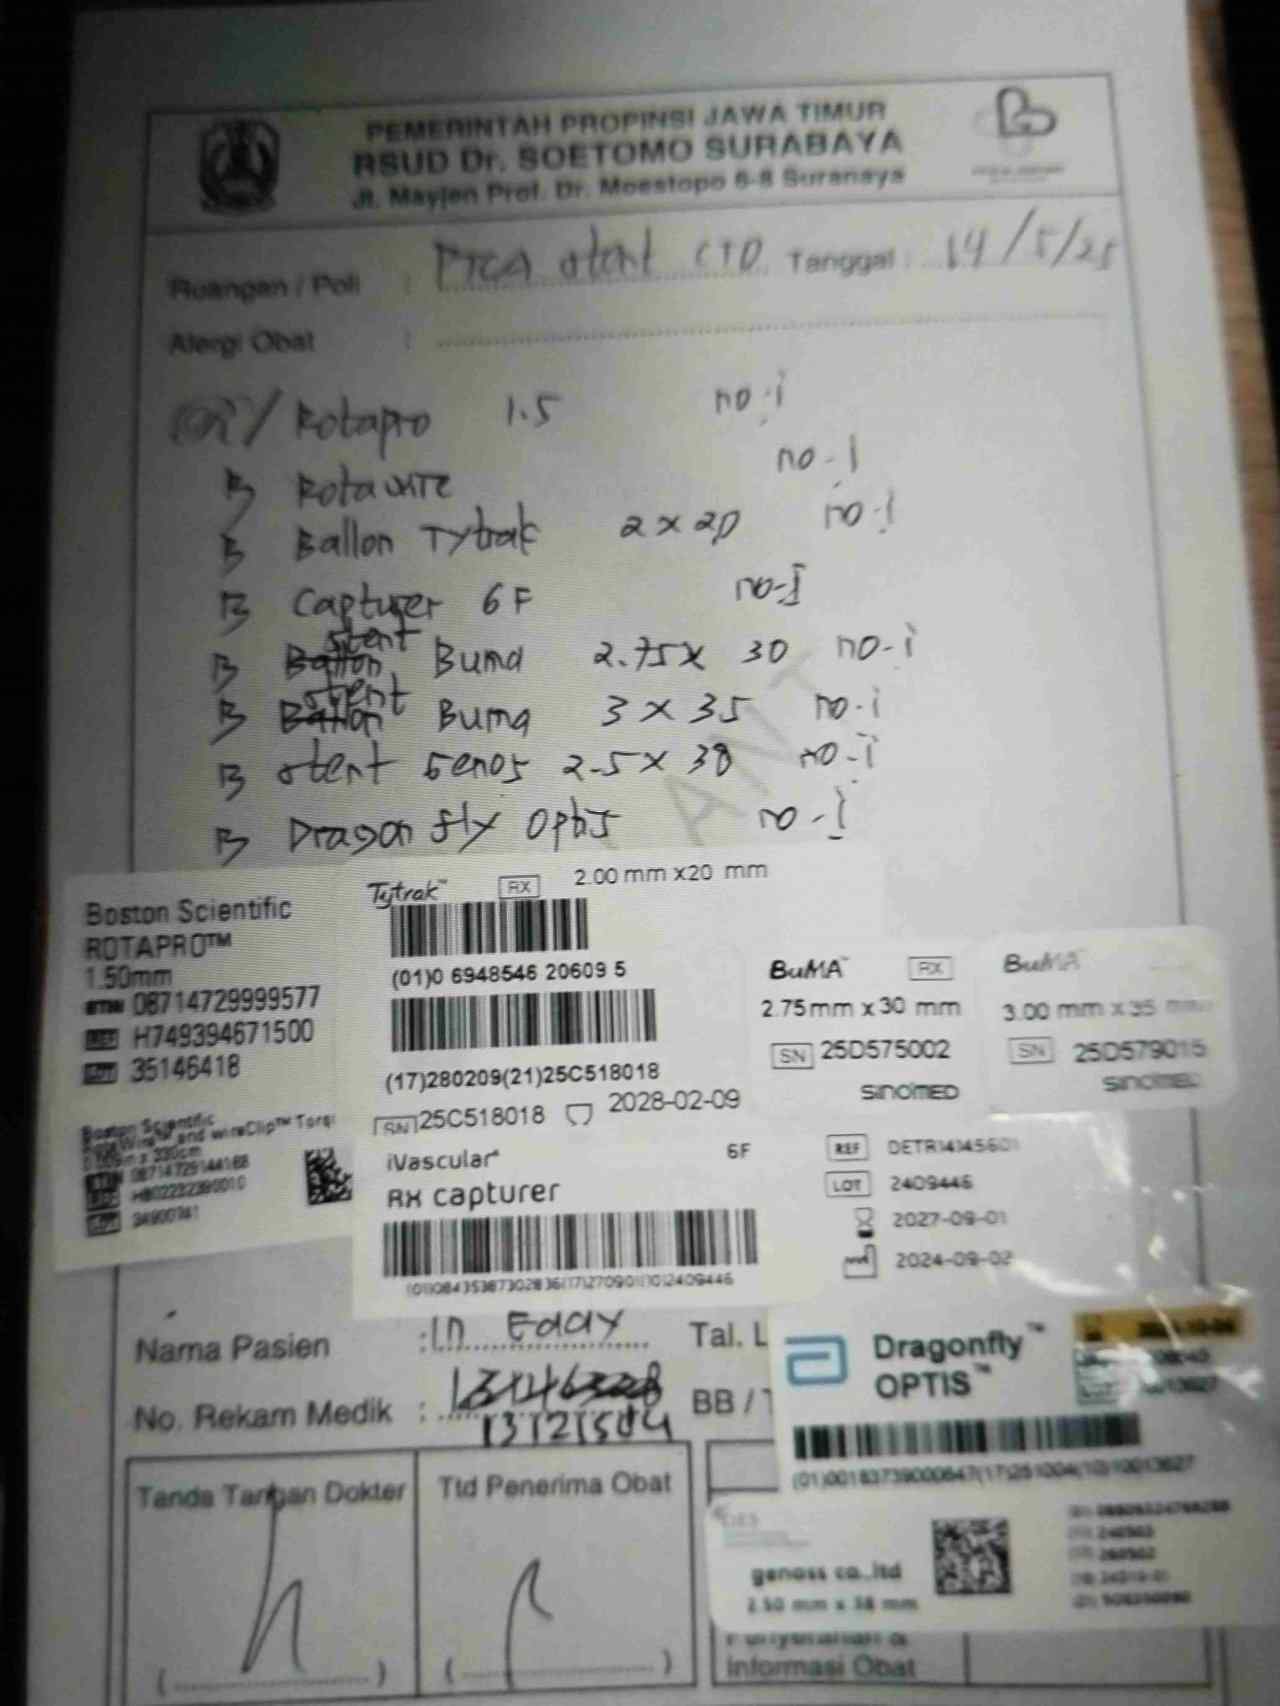 PEMERINTAH PROPINSI JAWA TIMUR
RSUD Dr. SOETOMO SURABAYA
Jl. Mayjen Prof. Dr. Moestopo 6-8 Suranaya
Ruangan / Poli : PTCA stent CTO Tanggal : 14/5/25
Alergi Obat :
R/ Rotapro 1.5 no. i
R Rotawire no - I
R Ballon Tytrak 2 x 20 no. i
R Capturer 6F no-I
R Ballon stent Buma 2.75 x 30 no-i
R Ballon stent Buma 3 x 35 no. i
R stent Genos 2.5 x 38 no-i
R Dragon fly Optis no - I
Boston Scientific
ROTAPRO™
1.50mm
08714729999577
REF H749394671500
LOT 35146418
Tytrak™ RX 2.00 mm x20 mm
(01)0 6948546 20609 5
(17)280209(21)25C518018
SN 25C518018 2028-02-09
BuMA™ RX
2.75mm x 30 mm
SN 25D575002
SINOMED
BuMA™
3.00 mm x 35 mm
SN 25D579015
SINOMED
Boston Scientific
and wireClip™
330cm
LOT 34900741
iVascular 6F
RX capturer
(01)08435387302836(17)270901(10)2409446
REF DETR14145601
LOT 2409446
2027-09-01
2024-09-02
Nama Pasien : Eddy
No. Rekam Medik : 13121504
BB /
Dragonfly™
OPTIS™
(01)00183739000647(17)251004(10)10013627
Tanda Tangan Dokter
Ttd Penerima Obat
genoss co.,ltd
2.50 mm x 38 mm
Informasi Obat